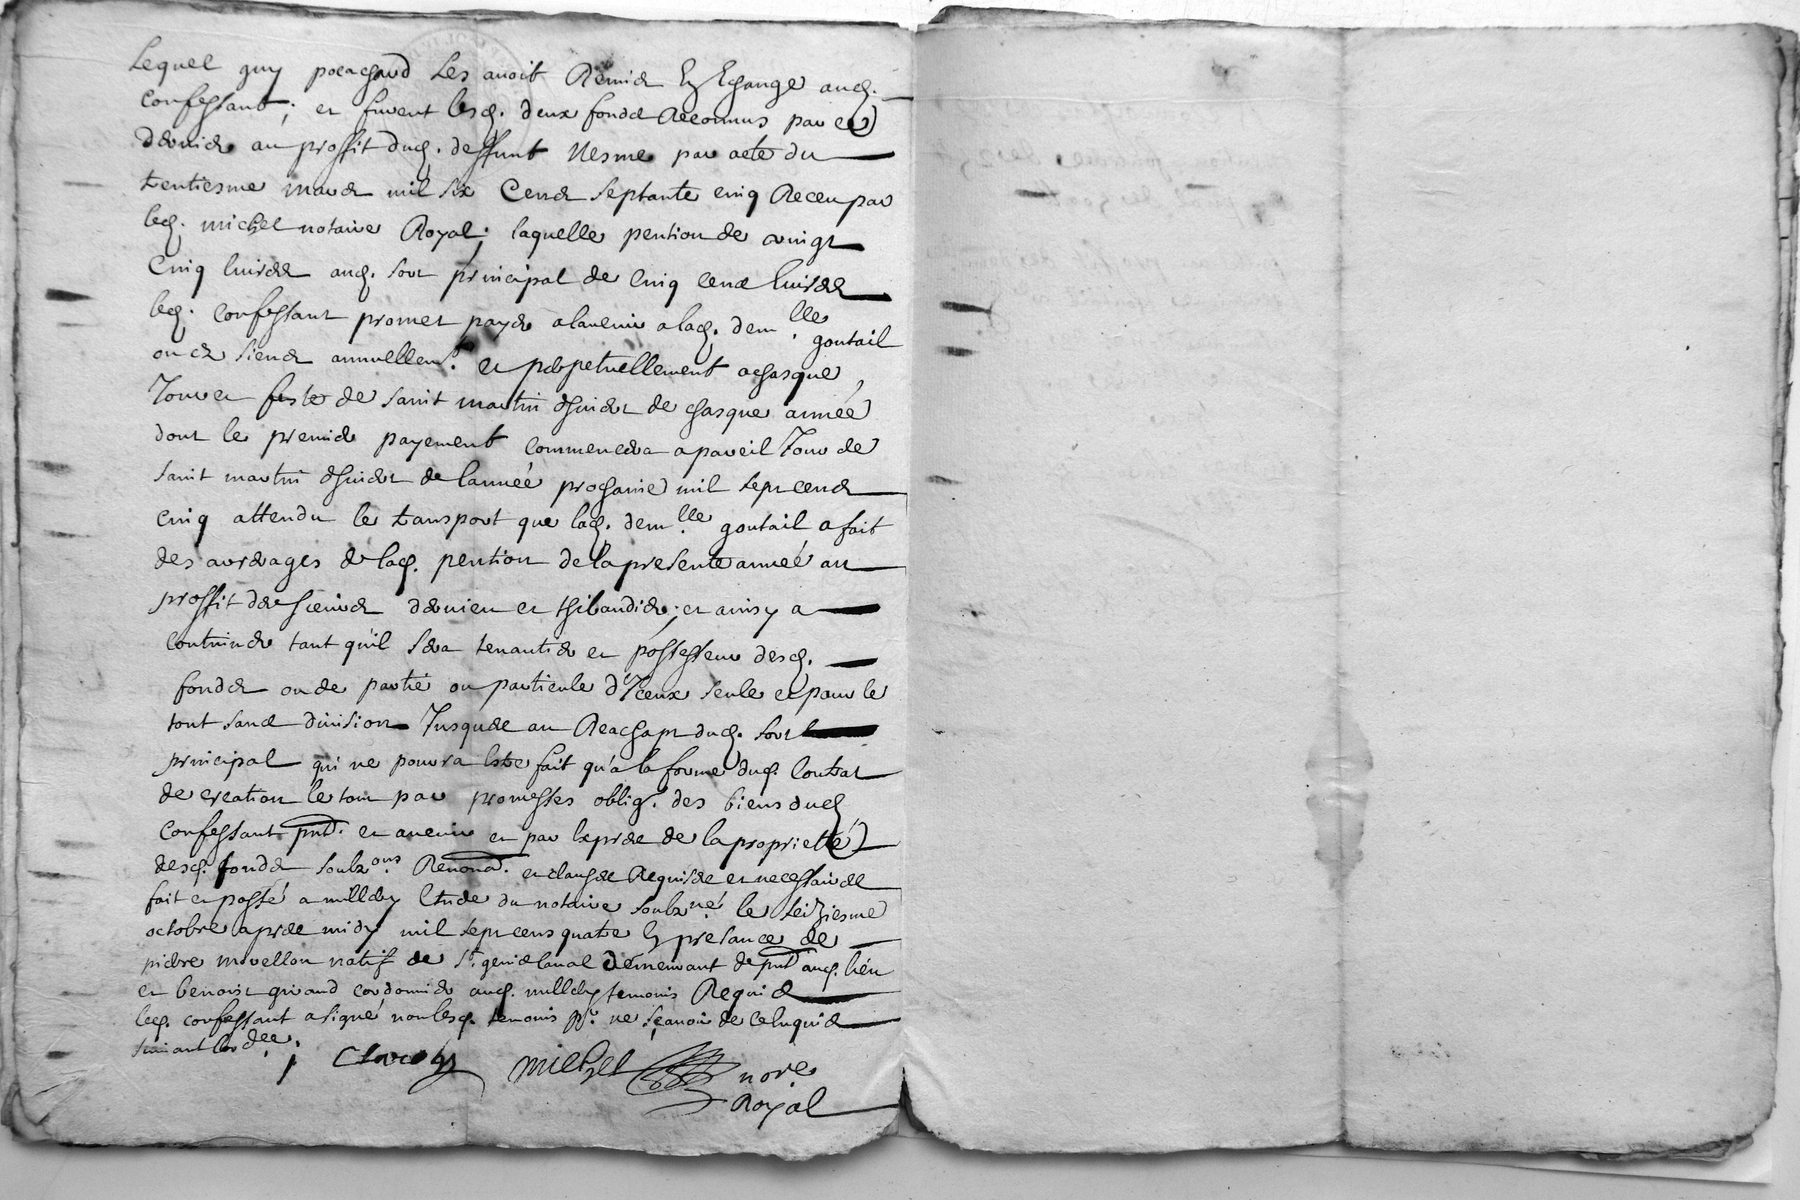 Lequel guy pocachard Les avoit Remis En Eschange aud.
Confessant; et furent lesd. deux fonds Reconnus par ce
dernier au proffit dud. deffunt Nesme par acte du
trentiesme mars mil six Cens septante cinq Receu par
led. michel notaire Royal; laquelle pention de vingt
Cinq livres aud. sort principal de Cinq cens livres
led. Confessant promet payer a lavenir a lad. dem.lle goutail
ou es siens annuellem.t et perpetuellement achasque
Jour et feste de saint martin dhiver de chasque année
dont le premier payement commencera a pareil Jour de
saint martin dhiver de lannée prochaine mil sept cens
Cinq attendu le transport que lad. dem.lle goutail a fait
des arrerages de lad. pention de la presente année au
proffit des sieurs et thibaudier; et ainsy a
Contraindre tant qu'il sera tenantier et possesseur desd.
fonds ou de partie ou particule d'Yceux seule et pour le
tout sans division Jusques au Reachapt dud. sort
principal qui ne pourra Estre fait qu'a la forme dud. Contrat
de creation le tout par promesses oblig. des biens dud
Confessant pnt. et avenir et par Exprès de la proprietté
desd. fonds soubz.ons Renond. et clauses Requises et necessaires
fait et passé a millery Etude du notaire soubz.né le seiziesme
octobre apres midy mil sept cens quatre En presance de
pierre morellon natif de S.t genis laval demeurant de pnt aud. lieu
et benoist giraud cordonnier aud. millery temoins Requis
led. confessant a signé non lesd. temoins p.r ne sçavoir de ce Enquis
suivant lord.ce.
michel no.re
Royal